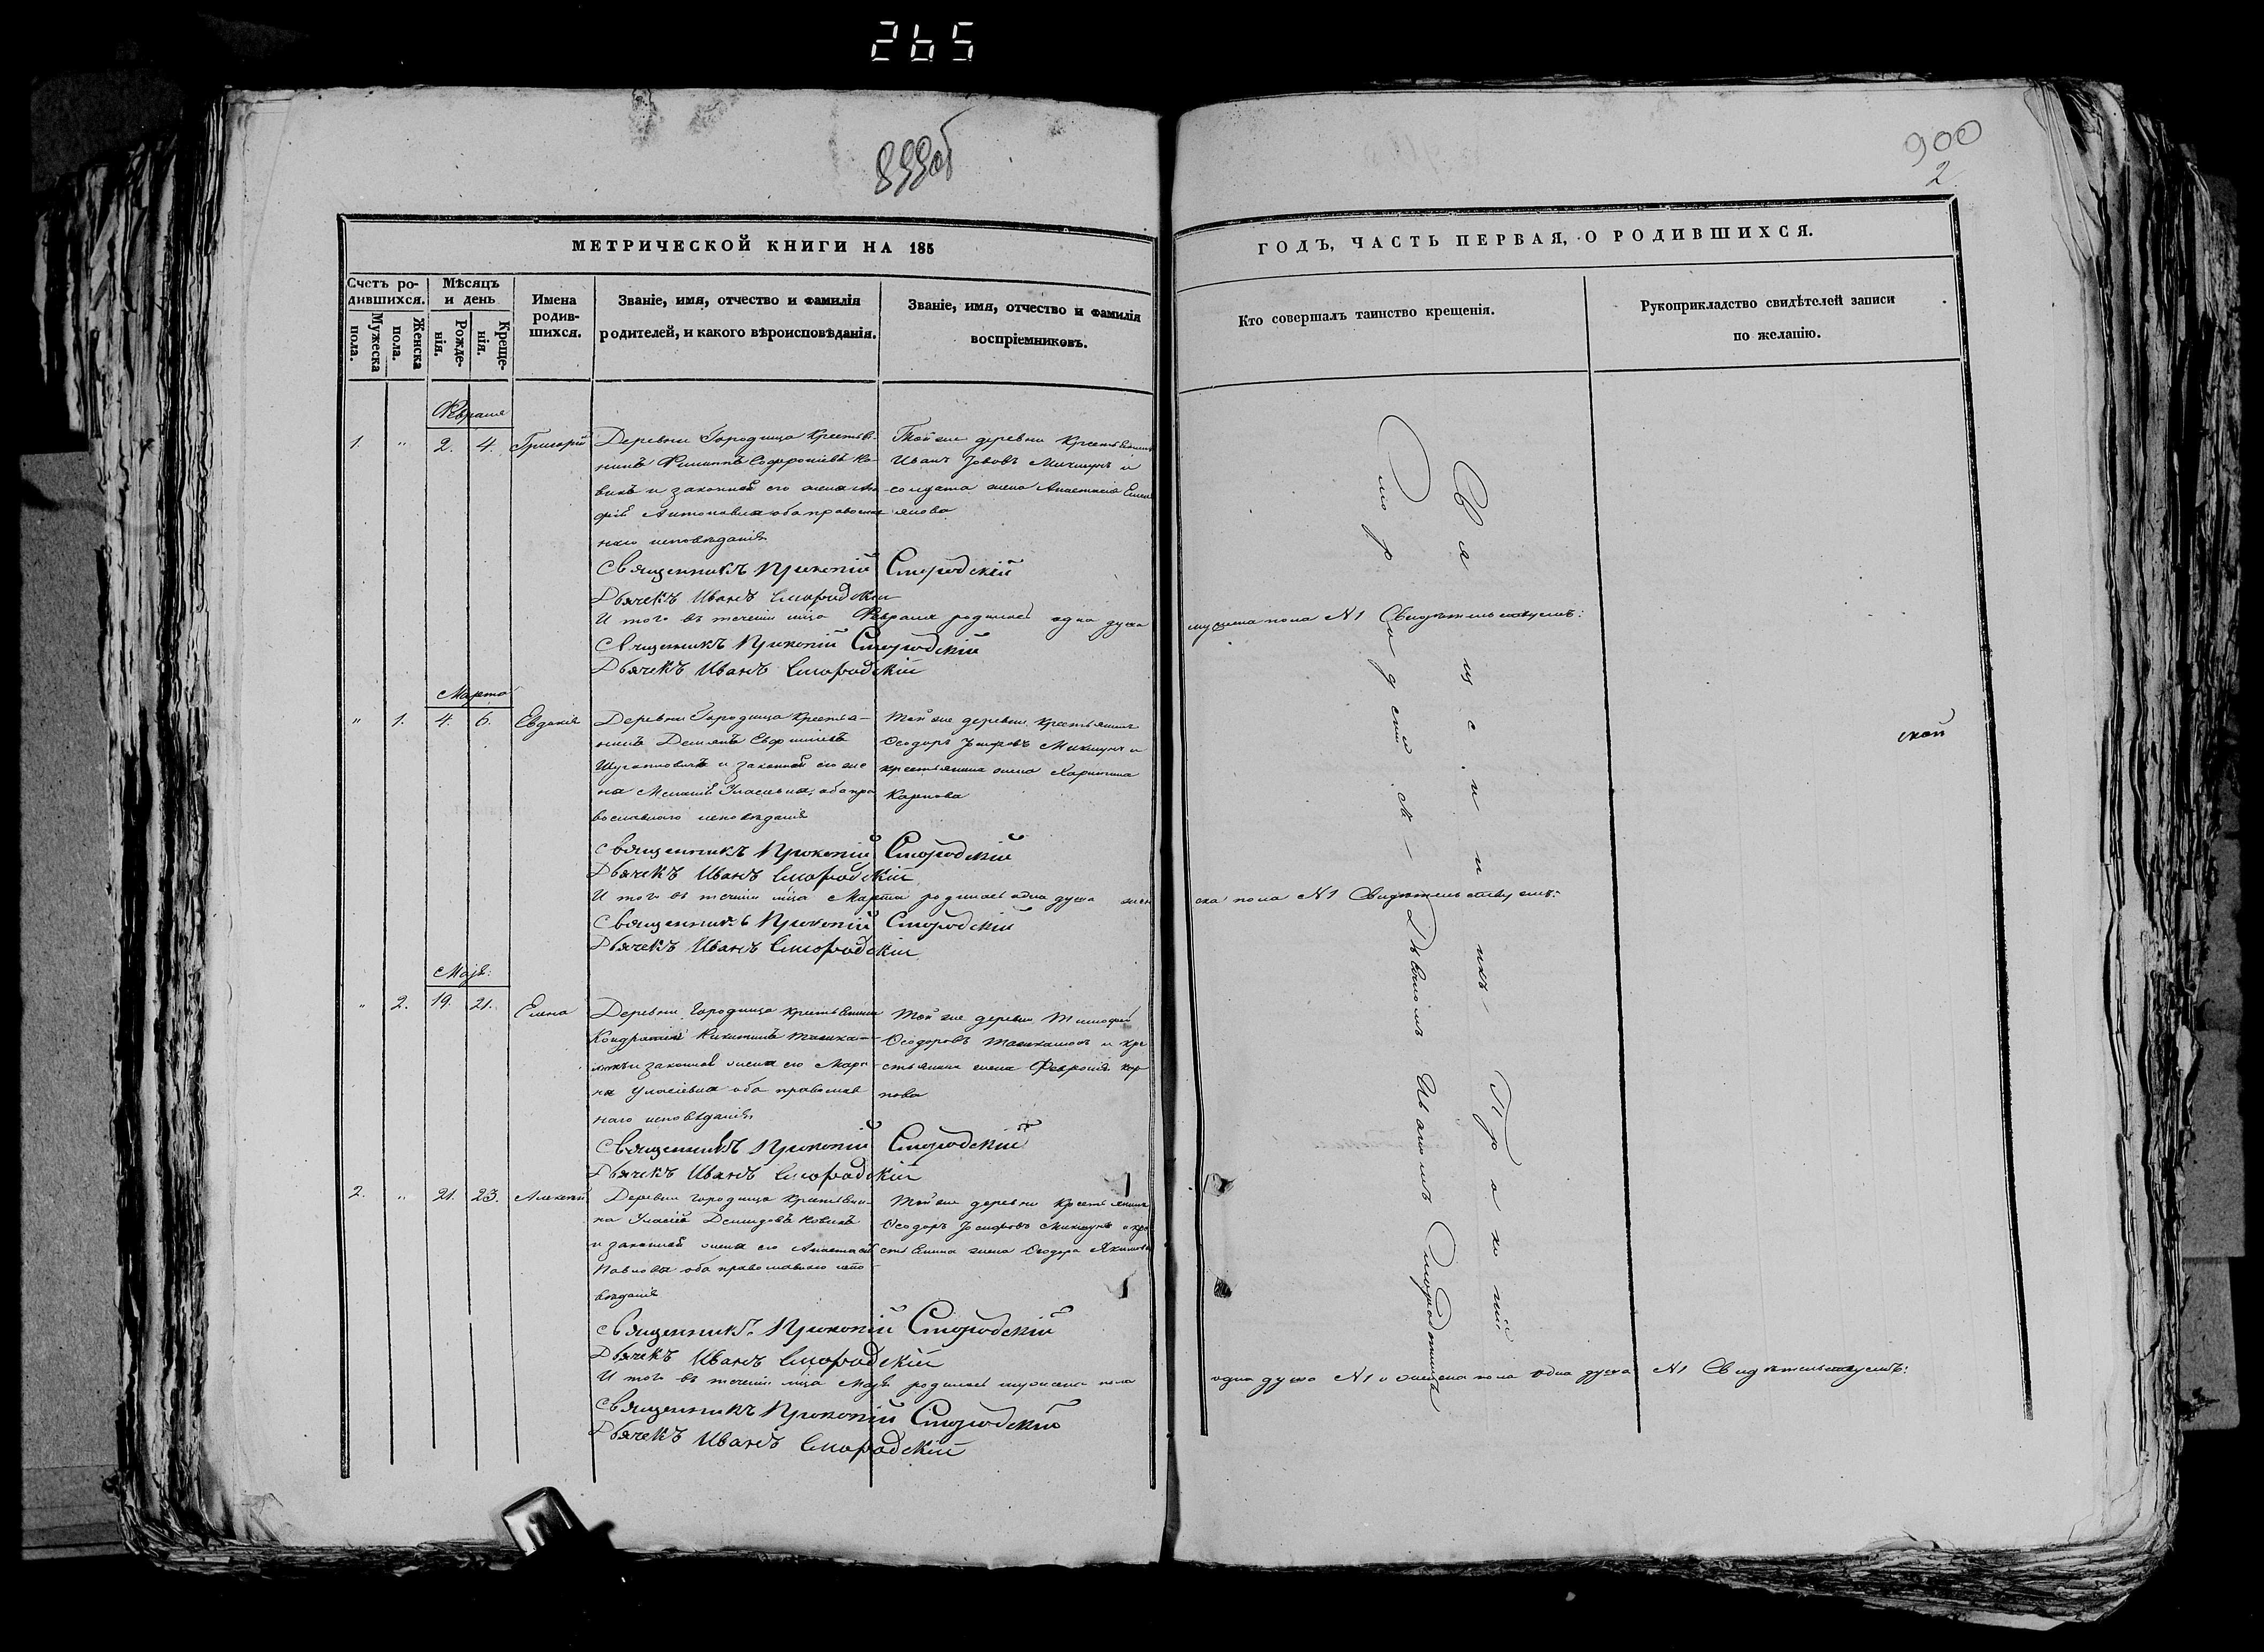 265
899об
900
2
МЕТРИЧЕСКОЙ КНИГИ НА 185
ГОДЪ, ЧАСТЬ ПЕРВАЯ, О РОДИВШИХСЯ.
Счетъ ро-
дившихся.
Мужеска
пола.
Женска
пола.
Мѣсяцъ
и день
Рожде-
нія.
Креще-
нія.
Имена
родив-
шихся.
Званіе, имя, отчество и фамилія
родителей, и какого вѣроисповѣданія.
Званіе, имя, отчество и фамилія
воспріемниковъ.
Кто совершалъ таинство крещенія.
Рукоприкладство свидѣтелей записи
по желанію.
Февраля
1. " 2. 4. Григорій
Деревни Городища Крестья-
нинъ Филиппъ Софроніевъ Ко-
викъ и законная его жена
Антонова оба православ
наго исповѣданія
Той же деревни Крестьянинъ
Иванъ Іововъ Микшунъ и
солдата жена Анастасія Емел
янова
Священникъ Прокопій Смородскій
Дьячекъ Иванъ Смородскій
И того въ теченіи мца Февраля родилась одна душа
мужеска пола №1 Свидѣтельствуемъ:
Священникъ Прокопій Смородскій
Дьячекъ Иванъ Смородскій
Марта
" 1. 4. 6. Евдокія
Деревни Городища Крестья-
нинъ Демянъ
и законная его же
на Меланія Уласьева, оба пра
вославнаго исповѣданія
Той же деревни Крестьянинъ
Ѳеодоръ Микшунъ и
крестьянина жена Харитина
Карпова
Священникъ Прокопій Смородскій
Дьячекъ Иванъ Смородскій
И того въ теченіи мца Марта родилась одна душа жен
ска пола №1 Свидѣтельствуемъ:
Священникъ Прокопій Смородскій
Дьячекъ Иванъ Смородскій
Маія:
" 2. 19. 21. Елена
Деревни Городища Крестьянинъ
Кондратій Никитинъ
и законная жена его Мари
на Уласіевна оба православ
наго исповѣданія
Той же деревни Тимофей
Ѳеодоровъ и кре
стьянина жена Февронія Кар
пова
Священникъ Прокопій Смородскій
Дьячекъ Иванъ Смородскій
2. " 21. 23. Алексѣй
Деревни Городища Крестьяни-
на Уласій Демидовъ Ковикъ
и законная жена его Анастасія
Павлова оба православнаго испо-
вѣданія
Той же деревни Крестьянинъ
Ѳеодоръ Іосифовъ Микшунъ и кре
стьянина жена Ѳеодора Якимова
Священникъ Прокопій Смородскій
Дьячекъ Иванъ Смородскій
И того въ теченіи мца Маія родилось мужеска пола
одна душа №1 и женска пола одна душа №1 Свидѣтельствуемъ:
Священникъ Прокопій Смородскій
Дьячекъ Иванъ Смородскій
Священникъ Прокопій
Смородскій
Дьячкомъ Иваномъ Смородскимъ
ской